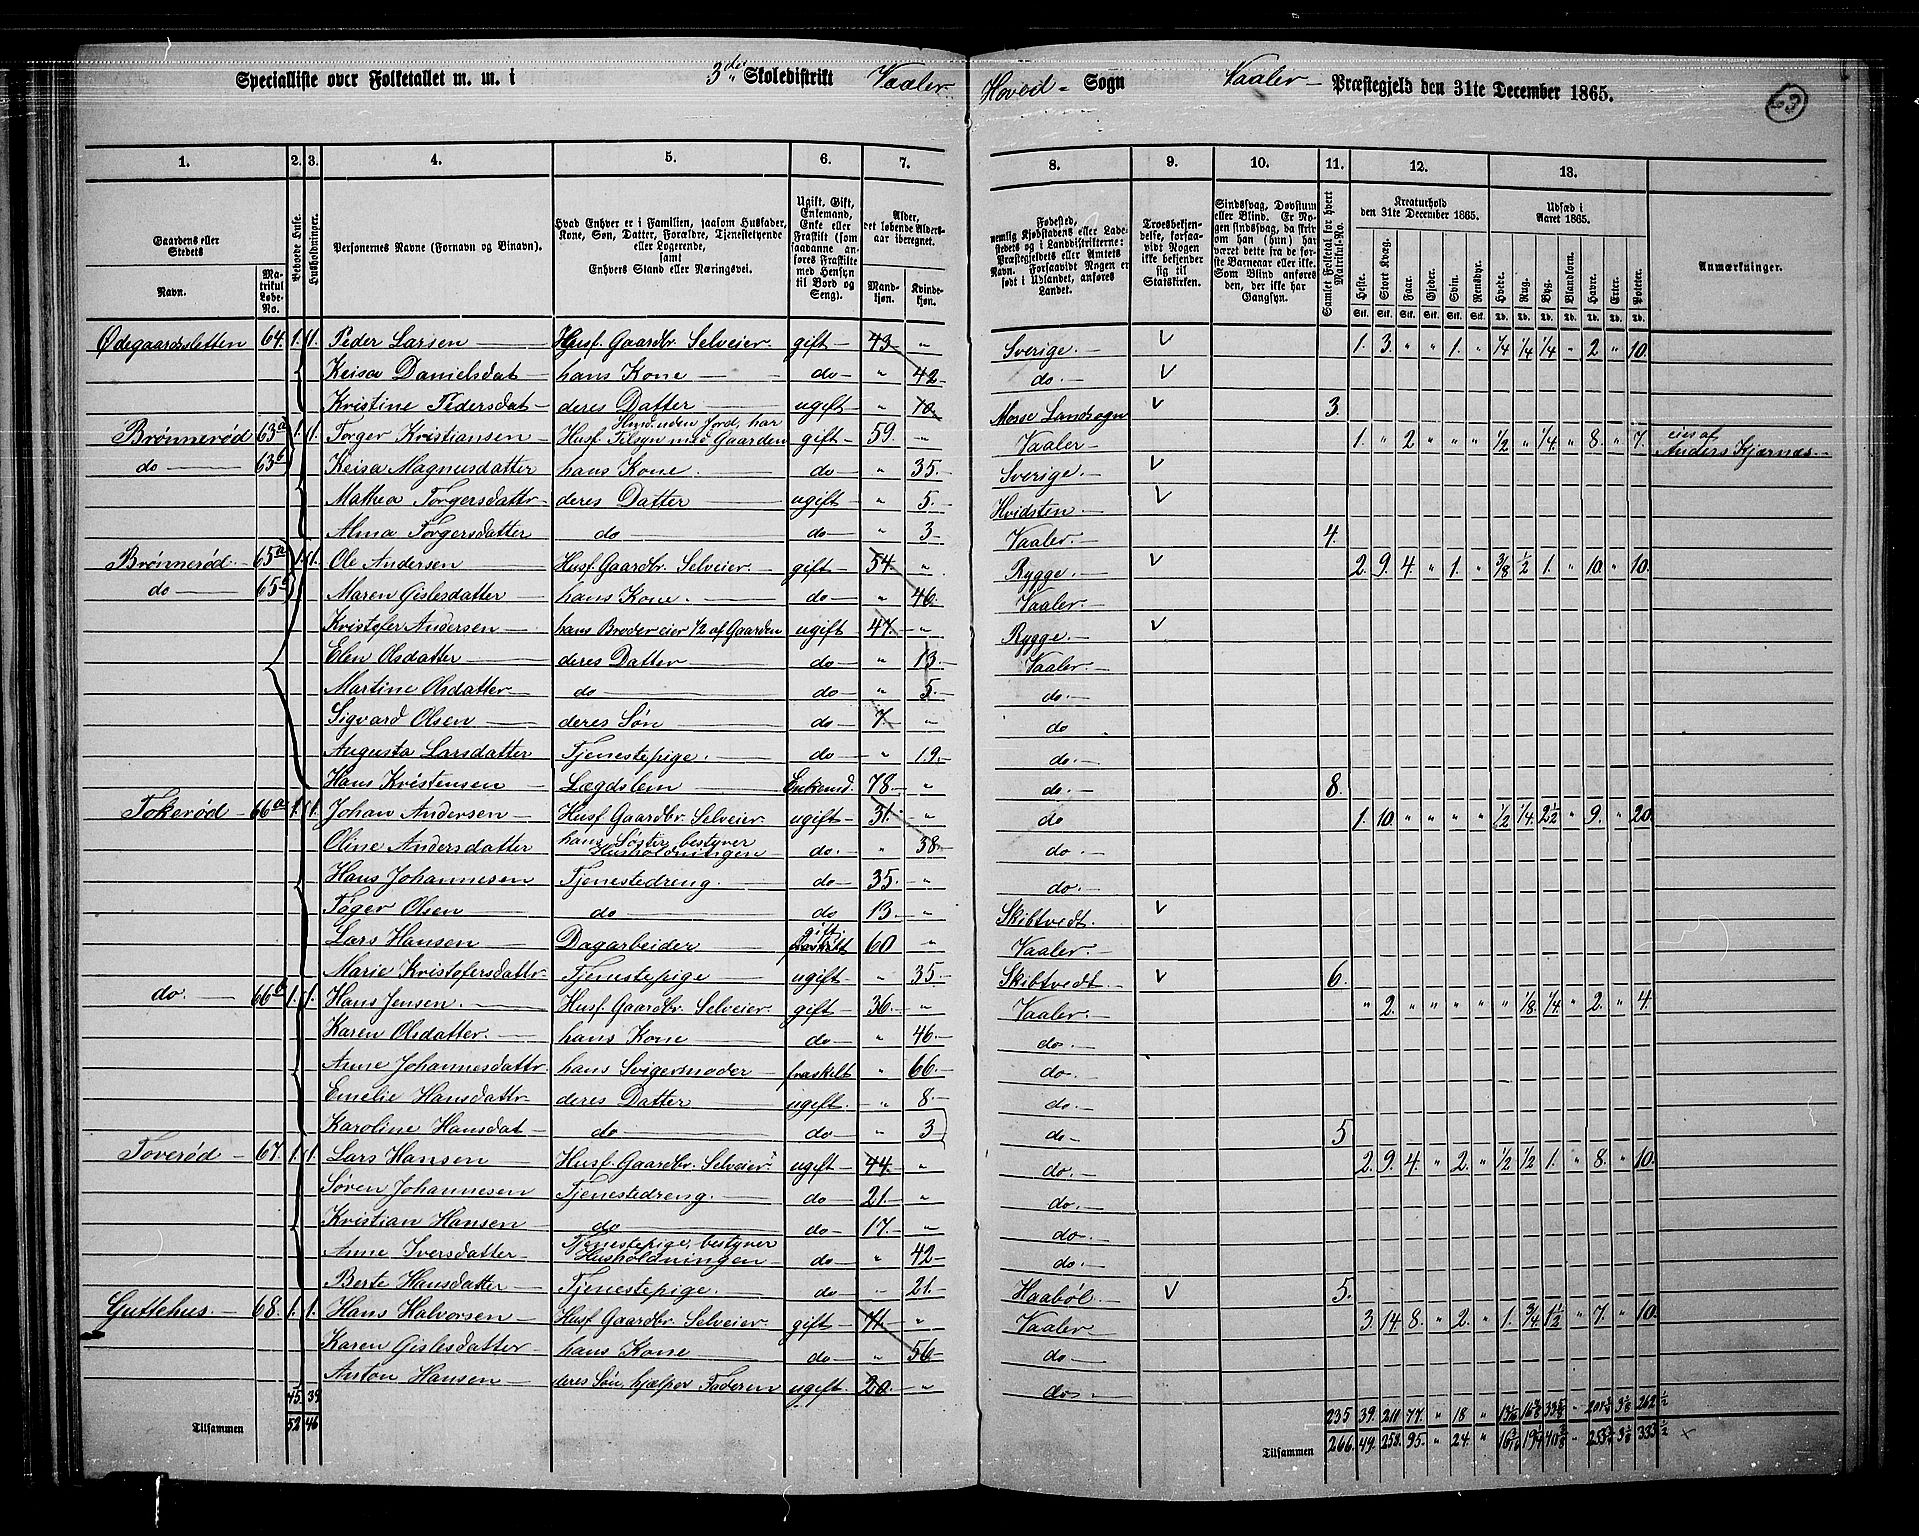 Specialliste over Folketallet m. m. i 3die Skoledistrikt Vaaler Hoved- Sogn Vaaler Præstegjeld den 31te December 1865.
63
1. 2. 3. 4. 5. 6. 7. 8. 9. 10. 11. 12. 13.
Gaardens eller Stedets Navn. Matrikul Løbe-No. Beboede Huse. Husholdninger. Personernes Navne (Fornavn og Binavn). Hvad Enhver er i Familien, saasom Husfader, Kone, Søn, Datter, Forældre, Tjenestetyende eller Logerende, samt Enhvers Stand eller Næringsvei. Ugift, Gift, Enkemand, Enke eller Fraskilt (som saadanne anføres Fraskilte med Hensyn til Bord og Seng). Alder, det løbende Aldersaar iberegnet. Mandkjøn. Kvindekjøn.
Fødested, nemlig Kjøbstadens eller Ladestedets og i Landdistrikterne: Præstegjeldets eller Amtets Navn. Forsaavidt Nogen er født i Udlandet, anføres Landet. Troesbekjendelse, forsaavidt Nogen ikke bekjender sig til Statskirken. Sindssvag, Døvstum eller Blind. Er Nogen sindssvag, da skriv om han (hun) har været dette fra de første Barneaar eller ikke. Som Blind anføres den, der ikke har Gangsyn. Samlet Folketal for hvert Matrikul-No. Kreaturhold den 31te December 1865. Udsæd i Aaret 1865. Anmærkninger.
Heste. Stort Kvæg. Faar. Gjeder. Svin. Rensdyr. Hvede. Rug. Byg. Blandkorn. Havre. Erter. Poteter.
Stk. Stk. Stk. Stk. Stk. Stk. Td. Td. Td. Td. Td. Td. Td.
Ødegaardsletten 64. 1. 1. Peder Larsen Husf. Gaardbr. Selveier. gift 43 " Sverige. V 1. 3. " " 1. " 1/4 1/4 1/4 " 2 " 10.
Keisa Danielsdat hans Kone do " 42 do. V
Kristine Pedersdat deres Datter ugift " 10 Mosse Landsogn V 3.
Brønnerød 63a 1. 1. Torger Kristiansen Husf. Hmd. uden Jord, har Tilsyn med Gaarden gift 59. " Vaaler 1. " 2 " " " 1/2 " 1/4 " 8. " 7. eies af Anders Kjærnæs
do 63b Keisa Magnusdatter hans Kone. do " 35. Sverige. V
Mathea Torgersdattr deres Datter ugift " 5. Hvidsten V
Alma Torgersdatter do do " 3 Vaaler. 4.
Brønnerød. 65a 1. 1. Ole Andersen Husf. Gaardbr. Selveier. gift 54 " Rygge. V 2. 9. 4. " 1. " 3/8 1/2 1. " 10. " 10.
do 65b Maren Gislesdatter hans Kone. do " 46. Vaaler.
Kristofer Andersen hans Broder eier 1/2 af Gaarden ugift 47. " Rygge V
Elen Olsdatter deres Datter do " 13. Vaaler.
Martine Olsdatter do do " 5. do.
Sigvard Olsen deres Søn do 7. " do
Augusta Larsdatter Tjenestepige. do " 19. do.
Hans Kristensen Lægdslem Enkemd. 78. " do. 8.
Tokerød 66a 1. 1. Johan Andersen Husf. Gaardbr. Selveier ugift 31. " do 1. 10. " " " " 1/2 1/4. 2 1/2 " 9. " 20
Oline Andersdatter hans Søster bestyrer Husholdningen do. " 38. do.
Hans Johannesen Tjenestedreng. do 35. " do.
Tøger Olsen do do 13. " Skibtvedt. V
Lars Hansen Dagarbeider gift fraskilt 60 " Vaaler.
Marie Kristofersdattr Tjenestepige ugift " 35. Skibtvedt. V 6.
do. 66b 1. 1. Hans Jensen. Husf. Gaardbr. Selveier. gift 36. " Vaaler. " 2. " " " " " 1/8. 1/4. " 2. " 4.
Karen Olsdatter. hans Kone do " 46. do.
Anne Johannesdattr. hans Svigermoder fraskilt " 66. do.
Emelie Hansdattr deres Datter ugift. " 8. do.
Karoline Hansdat do do " 3 do 5
Toverød 67. 1. 1. Lars Hansen Husf. Gaardbr. Selveier. ugift 44. " do. 2. 9. 4. " 2. " 1/2 1/2 1. " 8. " 10.
Søren Johannesen Tjenestedreng. do 21. " do.
Kristian Hansen do do 17. " do.
Anne Iversdatter Tjenestepige, bestyrer Husholdningen do " 42 do.
Berte Hansdatter Tjenestepige. do " 21. Haabøl. V 5.
Guttehus. 68. 1. 1. Hans Halvorsen Husf. Gaardbr. Selveier. gift 71. " Vaaler 3 14 8. " 2. " 1. 3/4 1 1/2 " 7. " 10.
Karen Gislesdatter hans Kone do " 56 do
Anton Hansen deres Søn, hjælper Faderen ugift. 20. " do.
45. 39 235 39. 77. " 18 "
Tilsammen 52 46 Tilsammen 266. 49. 258. 95. " 24. " 333 1/2